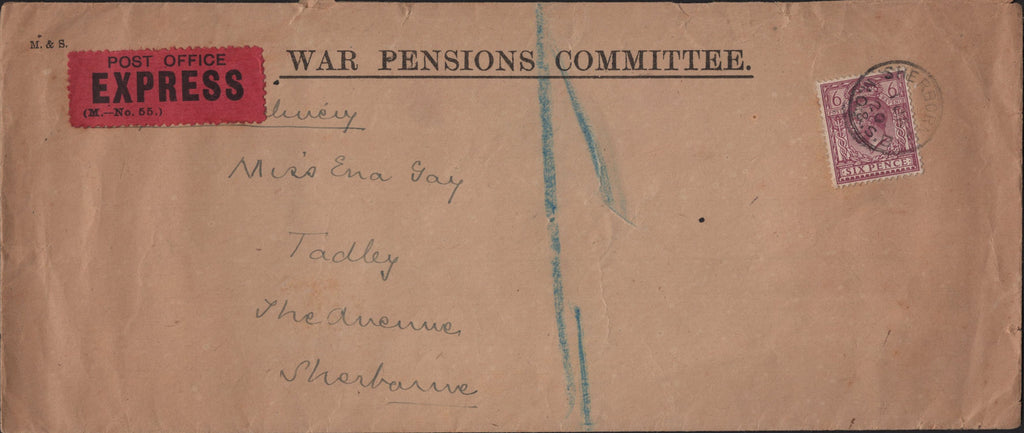 M. & S.
POST OFFICE
EXPRESS
(M.—No. 55.)
WAR PENSIONS COMMITTEE.
Miss Ena Gay
Tadley
The Avenue
Sherborne
6 6
SIX PENCE
SHERBORNE